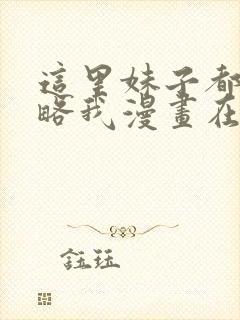 這里妹子都
略我漫畫在
鈺珏